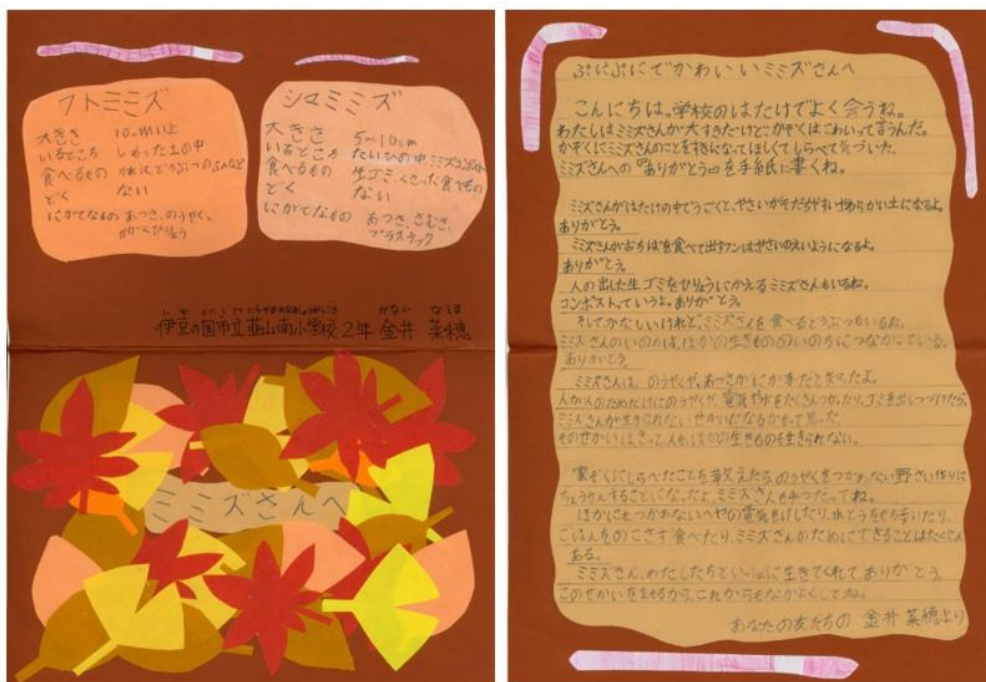 フトミミズ
大きさ 10cm以上
いるところ しめった土の中
食べるもの
どく ない
にがてなもの あつさ、のうやく、
かがくひりょう
シマミミズ
大きさ 5〜10cm
いるところ たいひの中、
食べるもの 生ゴミ、くさった食べもの
どく ない
にがてなもの あつさ、さむさ、
プラスチック
伊豆の国市立韮山南小学校2年 金井 菜穂
ミミズさんへ
ぷにぷにでかわいいミミズさんへ
こんにちは。学校のはたけでよく会うね。
わたしはミミズさんが大すきだけど、かぞくはこわいって言うんだ。
かぞくにミミズのことをすきになってほしくてしらべて気づいた、
ミミズさんへの『ありがとう』を手紙に書くね。
ミミズさんがはたけの中でうごくと、やさいがそだちやすいやわらかい土になるよ。
ありがとう。
ミミズさんがおちばを食べて出すフンはやさいのえいようになるよ。
ありがとう。
人の出した生ゴミをひりょうにかえるミミズさんもいるね。
コンポストっていうよ。ありがとう。
そして、かなしいけれど、ミミズさんを食べるどうぶつもいるね。
ミミズさんのいのちは、ほかの生きもののいのちにつながっている。
ありがとう。
ミミズさんは、のうやくや、あつさがにが手だと知ったよ。
人が人のためだけにのうやくや、電気や水をたくさんつかったり、ゴミを出しつづけたら、
ミミズさんが生きられないせかいになるかもって思った。
そのせかいはきっと、人も、ほかの生きものも生きられない。
家ぞくにしらべたことを教えたら、のうやくをつかわない野さい作りに
ちょうせんすることになったよ。ミミズさんも手つだってね。
ほかにもつかわないへやの電気をけしたり、水とうをもち歩いたり、
ごはんをのこさず食べたり、ミミズさんのためにできることはたくさん
ある。
ミミズさん、わたしたちといっしょに生きてくれて、ありがとう。
このせかいをまもるから、これからもなかよくしてね。
あなたの友だちの 金井 菜穂より